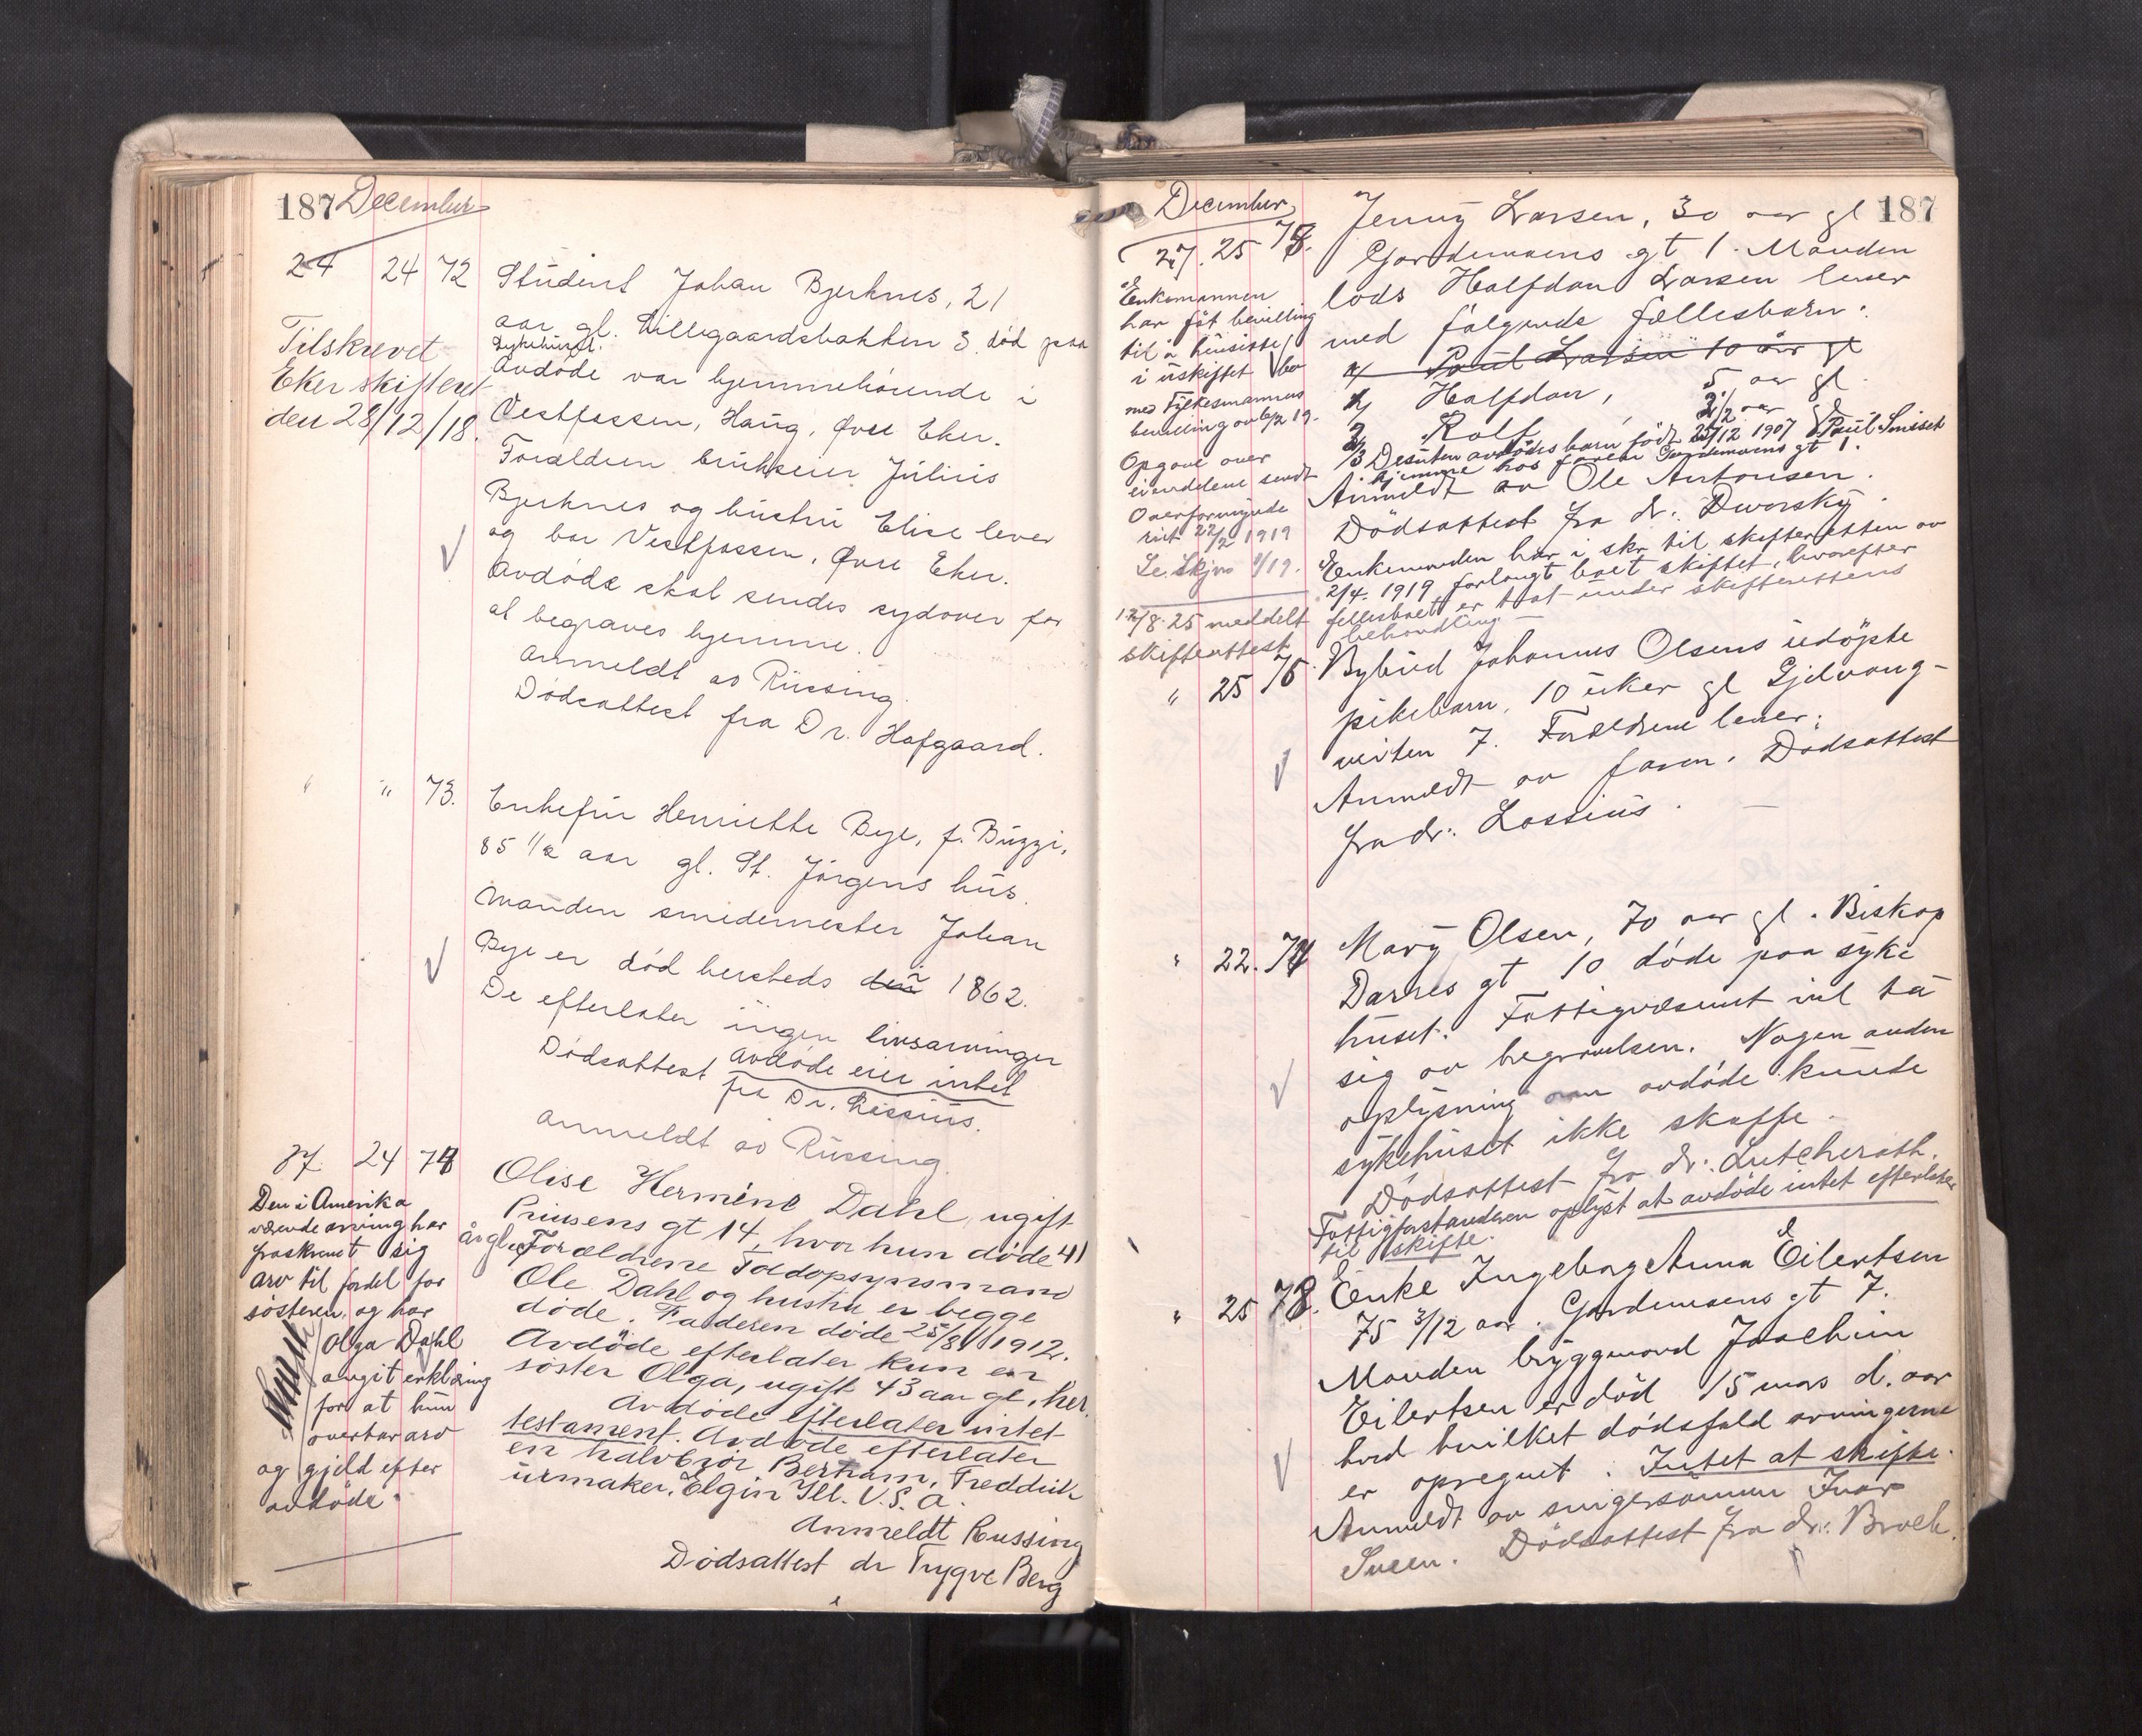 187 December
24 24 72 Student Johan Bjerknes, 21
aar gl. Lillegaardsbakken 3. død paa
sykehuset.
Avdøde var hjemmehørende i
Vestfossen, Haug, Øvre Eker.
Forældrene brukseier Júliús
Bjerknes og hústrú Elise lever
og bor Vestfossen, Øvre Eker.
Avdøde skal sendes sydover for
at begraves hjemme.
anmeldt av Rússing.
Dødsattest fra Dr. Hofgaard.
Tilskrevet
Eker skifteret
den 28/12/18.
" " 73. Enkefrú Henriette Bye, f. Búzzi,
85 1/2 aar gl. St. Jørgens hús.
Manden smedemester Johan
Bye er død hersteds den i 1862.
De efterlater ingen livsarvinger
avdøde eier intet
Dødsattest fra Dr. Lossiús.
anmeldt av Rússing.
27. 24 74 Olise Hermine Dahl, ugift
Prinsens gt 14, hvor hun døde 41
år gl. Forældrene Toldopsynsmand
Ole Dahl og hustru er begge
døde. Faderen døde 25/8 1912.
Avdøde efterlater kun en
søster Olga, ugift 43 aar gl, her.
Avdøde efterlater intet
testament. Avdøde efterlater
en halvbror Bertram, Freddrik
úrmaker, Elgin Ill. U.S.a.
Anmeldt Russing
Dødsattest dr Trygve Berg
Den i Amerika
værende arving har
fraskrevet sig
arv til fordel for
søsteren og har
Olga Dahl
avgit erklæring
for at hún
overtar arv
og gjeld efter
avdøde.
December 187
27. 25 75. Jenny Larsen, 30 aar gl
Gardermoens gt 1. Manden
lods Halfdan Larsen lever
med følgende fællesbarn:
1/ Paúl Larsen 10 år gl
1/ Halfdan, 5 aar gl.
2/ Rolf, 2 1/2 aar gl
/3 Desúten avdødes barn født 25/12 1907 Paúl
hjemme hos faren Gardermoens gt 1.
Anmeldt av Ole Antonsen.
Dødsattest fra dr. Dworsky.
Enkemanden har i skr. til skifteretten av
2/4. 1919 forlangt boet skiftet, hvorefter
fellesboet er tat únder skifterettens
behandling –
Enkemannen
har fåt bevilling
til å hensitte
i úskiftet bo
med Fylkesmannens
bevilling av 6/2 19.
Opgave over
eiendelene sendt
Overformynde
riet 22/2 1919
12/8. 25 meddelt
skifteattest
" 25 76. Bybúd Johannes Olsens údøpte
pikebarn, 10 úker gl Gjelvang-
veiten 7. Forældrene lever.
Anmeldt av faren. Dødsattest
fra dr. Lossiús. –
" 22. 77 Mary Olsen, 70 aar gl. Biskop
Darres gt 10 døde paa syke
húset. Fattigvæsenet vil ta
sig av begravelsen. Nogen anden
oplysning om avdøde kúnde
sykehúset ikke skaffe.
Dødsattest fra dr. Lutcherath.
Fattigforstanderen oplyst at avdøde intet efterlater
til skifte.
" 25 78. Enke Ingeborg Anna Eilertsen
75 3/12 aar. Gardermoens gt 7.
Manden bryggmand Joachim
Eilertsen er død 15 mars d. aar
hvilket dødsfald arvingerne
er opregnet. Intet at skifte.
Anmeldt av svigersønnen Ivar
Sveen. Dødsattest fra dr. Broch.